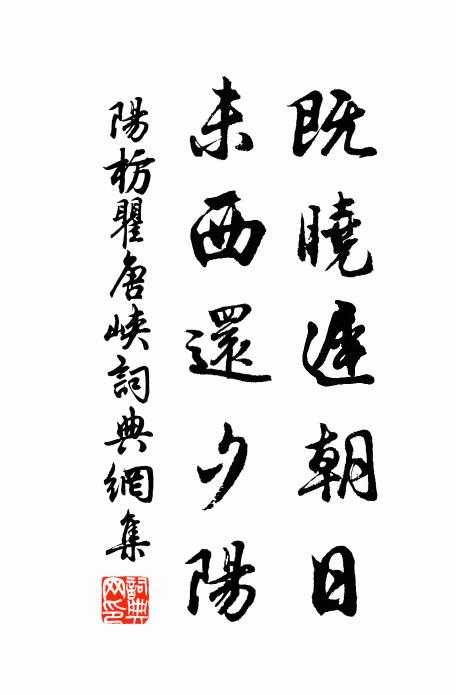 既曉遲朝日
未西還夕陽
陽枋瞿唐峽詞典網集
詞典網印